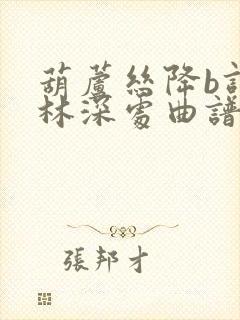 葫蘆絲降b
林深處曲譜
張邦才